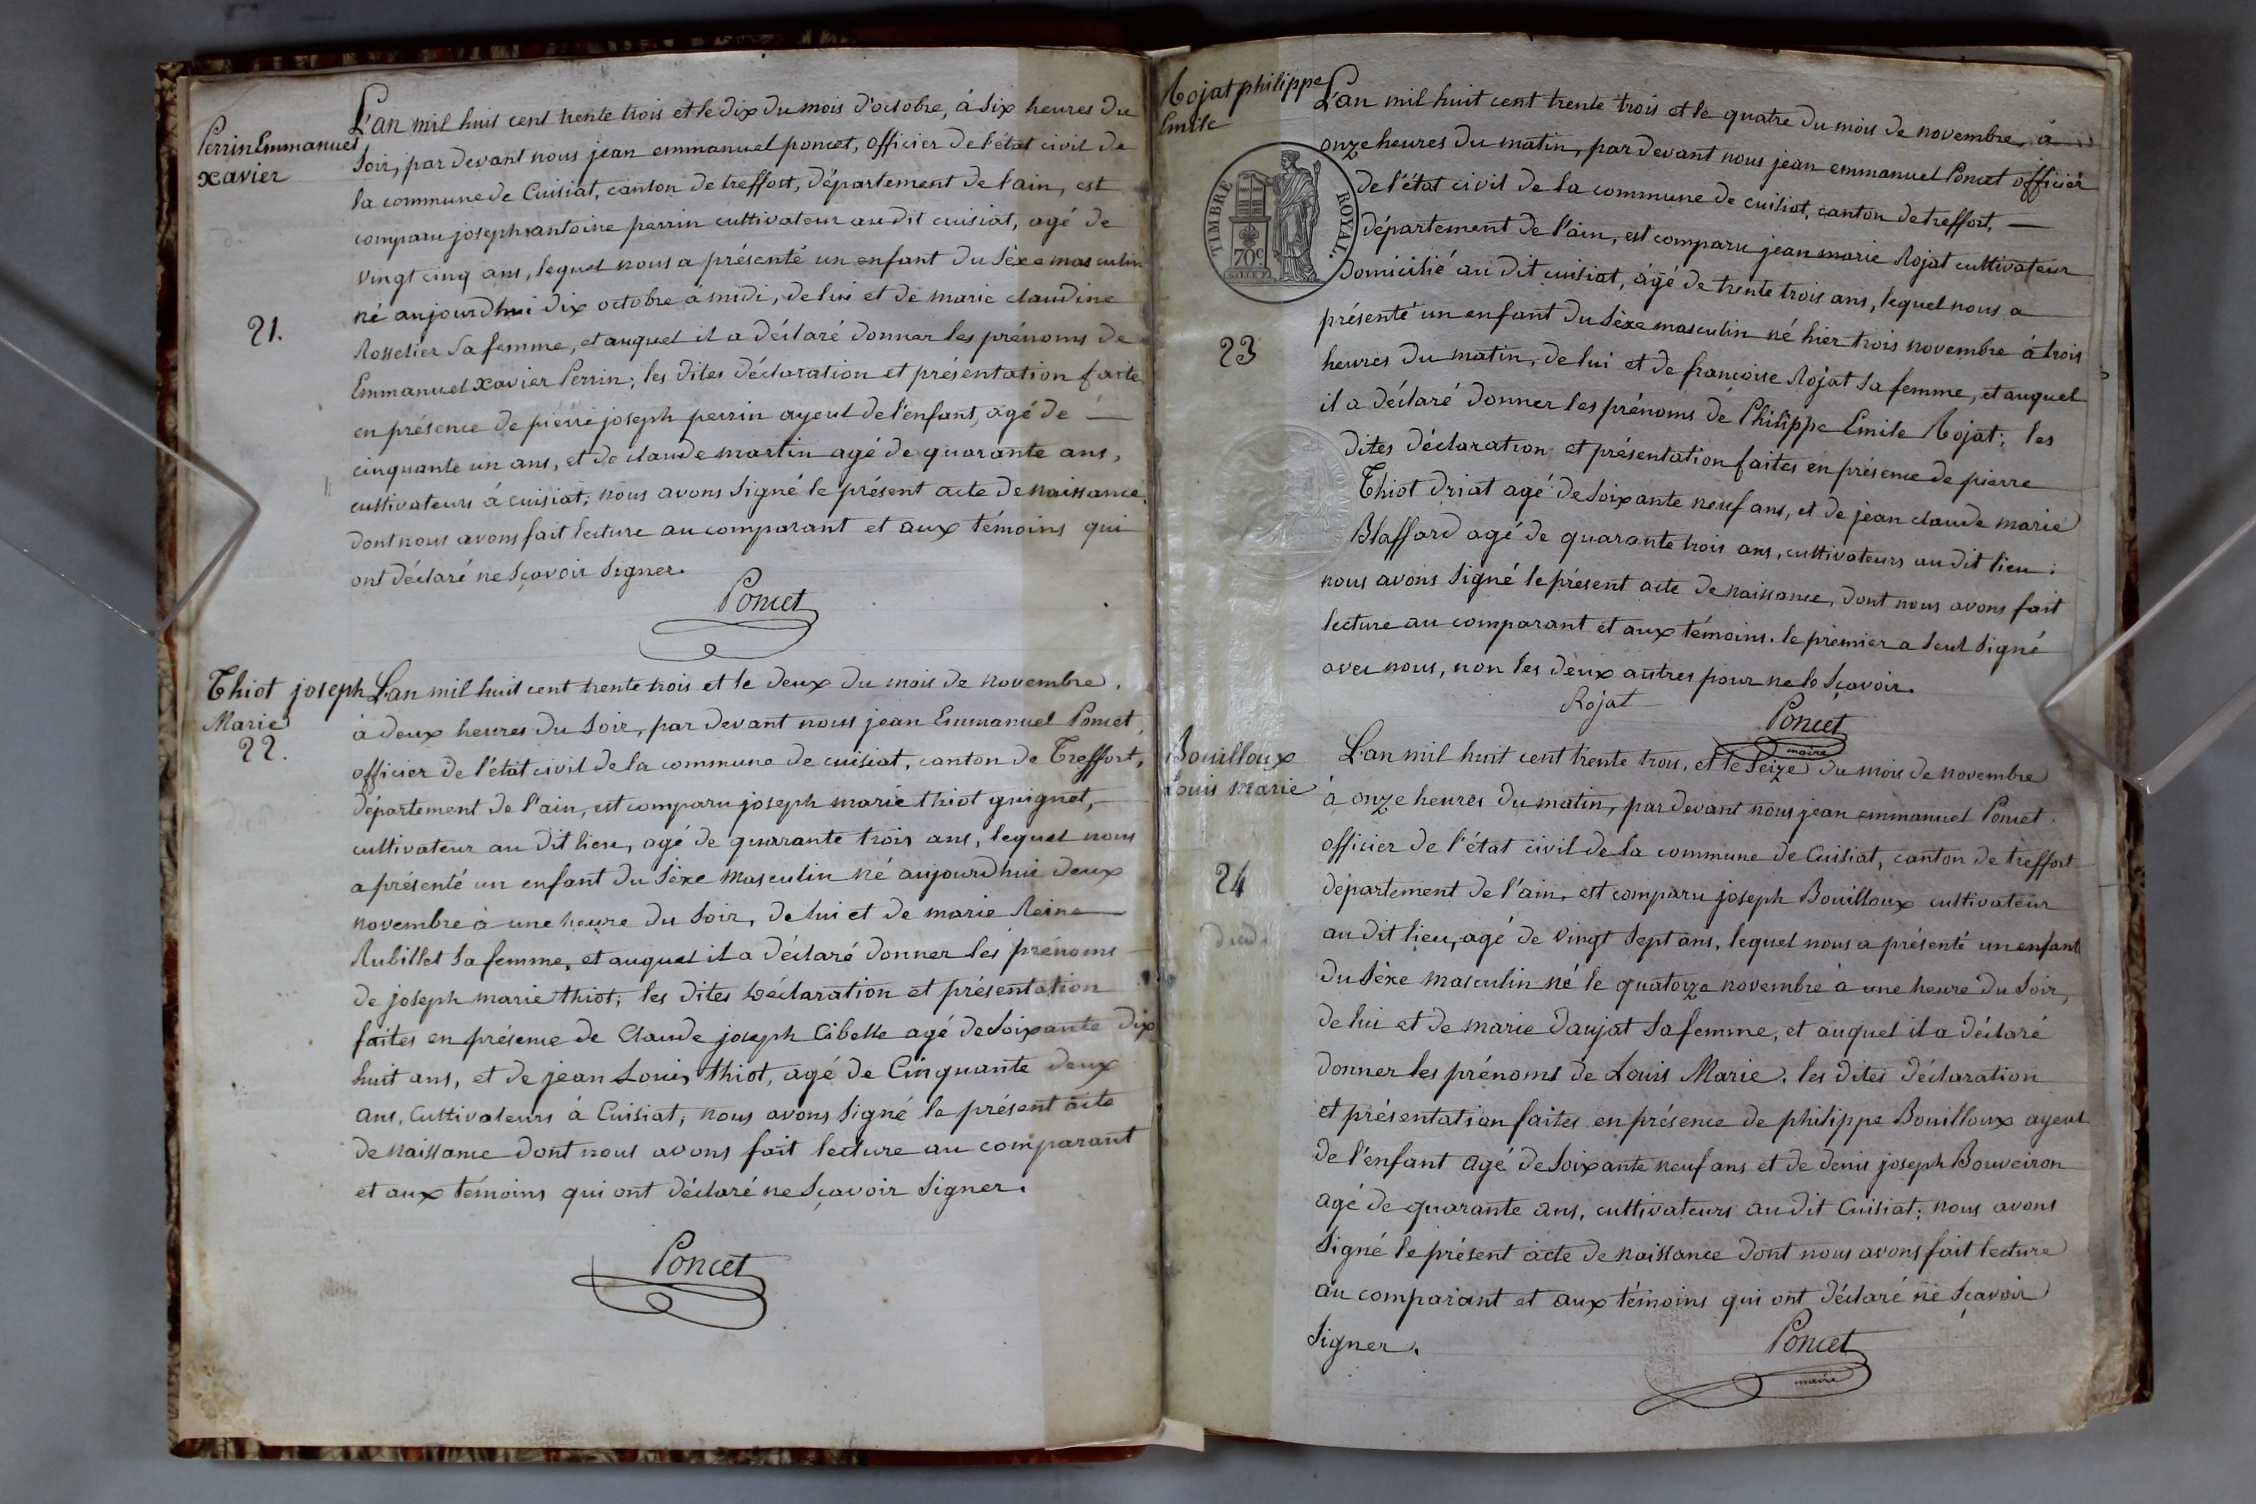 Perrin Emmanuel
xavier
21.
L'an mil huit cent trente trois et le dix du mois d'octobre, à six heures du
soir, par devant nous jean emmanuel poncet, officier de l'état civil de
la commune de Cuisiat, canton de treffort, département de l'ain, est
comparu joseph antoine perrin cultivateur au dit cuisiat, agé de
vingt cinq ans, lequel nous a présenté un enfant du sèxe masculin
né aujourdhui dix octobre à midi, de lui et de marie claudine
Rosselier sa femme, et auquel il a déclaré donner les prénoms de
Emmanuel xavier Perrin; les dites déclaration et présentation faite
en présence de pierre joseph perrin ayeul de l'enfant, agé de
cinquante un ans, et de claude martin agé de quarante ans,
cultivateurs à cuisiat; nous avons signé le présent acte de naissance
dont nous avons fait lecture au comparant et aux témoins qui
ont déclaré ne sçavoir signer.
Poncet
Thiot joseph
Marie
22.
L'an mil huit cent trente trois et le deux du mois de novembre,
à deux heures du soir, par devant nous jean Emmanuel Poncet,
officier de l'état civil de la commune de cuisiat, canton de Treffort,
département de l'ain, est comparu joseph marie thiot guignet,
cultivateur au dit lieu, agé de quarante trois ans, lequel nous
a présenté un enfant du sèxe masculin né aujourdhui deux
novembre à une heure du soir, de lui et de marie Reine
Rubillet sa femme, et auquel il a déclaré donner les prénoms
de joseph marie thiot; les dites déclaration et présentation
faites en présence de Claude joseph Cibelle agé de soixante dix
huit ans, et de jean Louis thiot, agé de Cinquante deux
ans, Cultivateurs à Cuisiat; nous avons signé le présent acte
de naissance dont nous avons fait lecture au comparant
et aux témoins qui ont déclaré ne sçavoir signer.
Poncet
Rojat philippe
Emile
TIMBRE ROYAL.
70c
23
L'an mil huit cent trente trois et le quatre du mois de novembre, à
onze heures du matin, par devant nous jean emmanuel Poncet officier
de l'état civil de la commune de cuisiat, canton de treffort,
département de l'ain, est comparu jean marie Rojat cultivateur
domicilié au dit cuisiat, âgé de trente trois ans, lequel nous a
présenté un enfant du sèxe masculin né hier trois novembre à trois
heures du matin, de lui et de francoise Rojat sa femme, et auquel
il a déclaré donner les prénoms de Philippe Emile Rojat; les
dites déclaration et présentation faites en présence de pierre
Thiot driat agé de soixante neuf ans, et de jean claude marie
Blaffard agé de quarante trois ans, cultivateurs au dit lieu:
nous avons signé le présent acte de naissance, dont nous avons fait
lecture au comparant et aux témoins. le premier a seul signé
avec nous, non les deux autres pour ne le sçavoir.
Rojat Poncet
maire
Bouilloux
Louis marie
24
L'an mil huit cent trente trois, et le seize du mois de novembre
à onze heures du matin, par devant nous jean emmanuel Poncet.
officier de l'état civil de la commune de Cuisiat, canton de treffort
département de l'ain, est comparu joseph Bouilloux cultivateur
au dit lieu, agé de vingt sept ans, lequel nous a présenté un enfant
du sèxe masculin né le quatorze novembre à une heure du soir,
de lui et de marie daujat sa femme, et auquel il a déclaré
donner les prénoms de Louis Marie. les dites déclaration
et présentation faites en présence de philippe Bouilloux ayeul
de l'enfant agé de soixante neuf ans et de denis joseph Bouveiron
agé de quarante ans, cultivateurs au dit Cuisiat; nous avons
signé le présent acte de naissance dont nous avons fait lecture
au comparant et aux témoins qui ont déclaré ne sçavoir
signer.
Poncet
maire